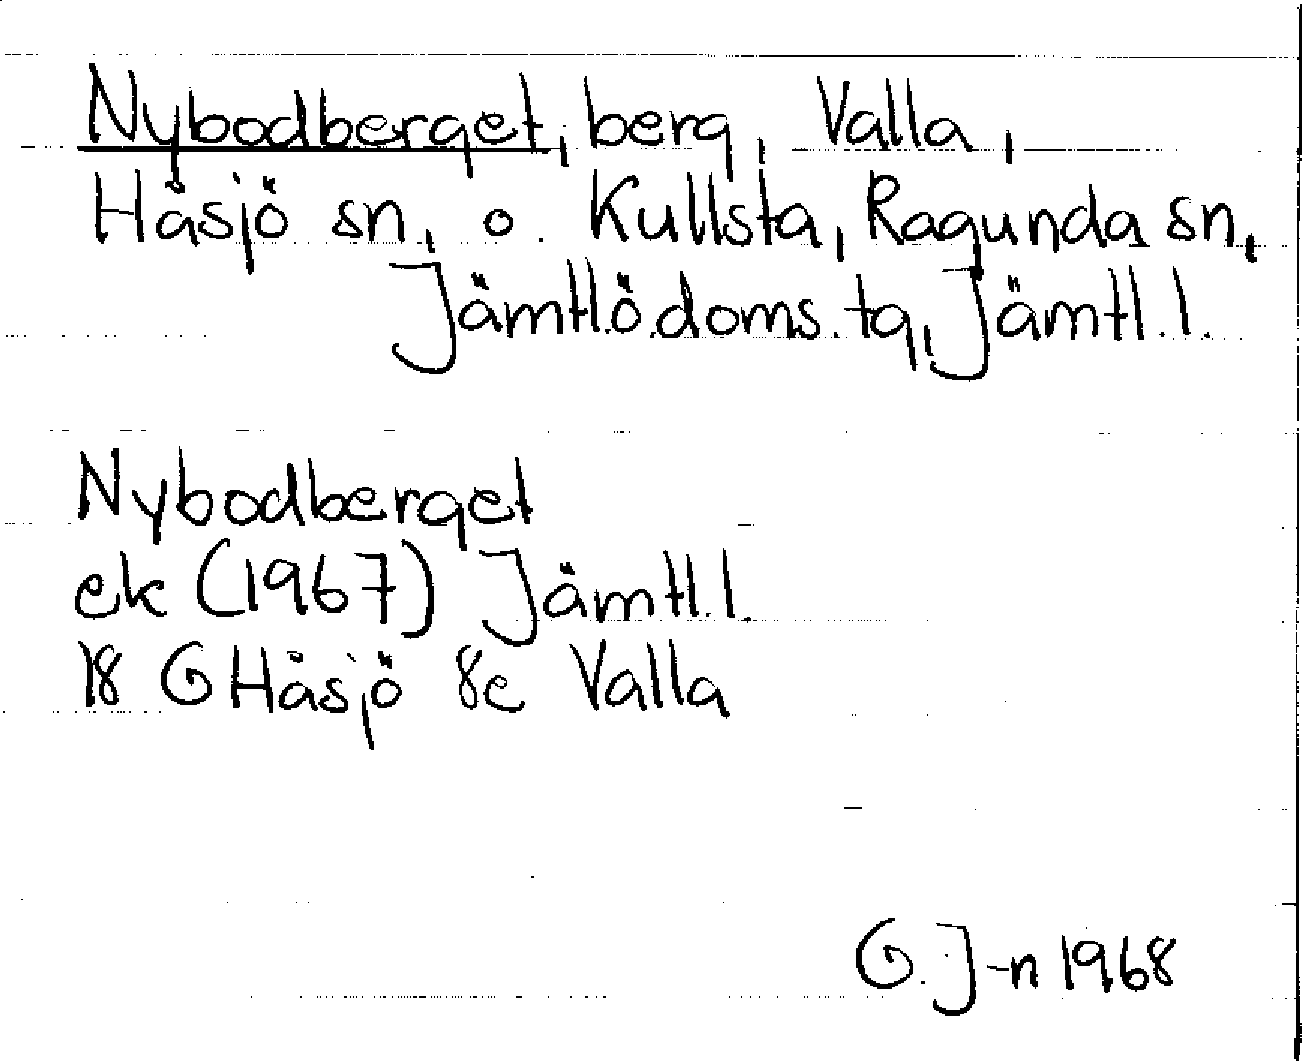 Nybodberget, berg, Valla,
Håsjö sn, o. Kullsta, Ragunda sn,
Jämtl.ö.doms.tg, Jämtl.l.
Nybodberget
ek (1967) Jämtl.l.
18 G Håsjö 8c Valla
G. J-n 1968